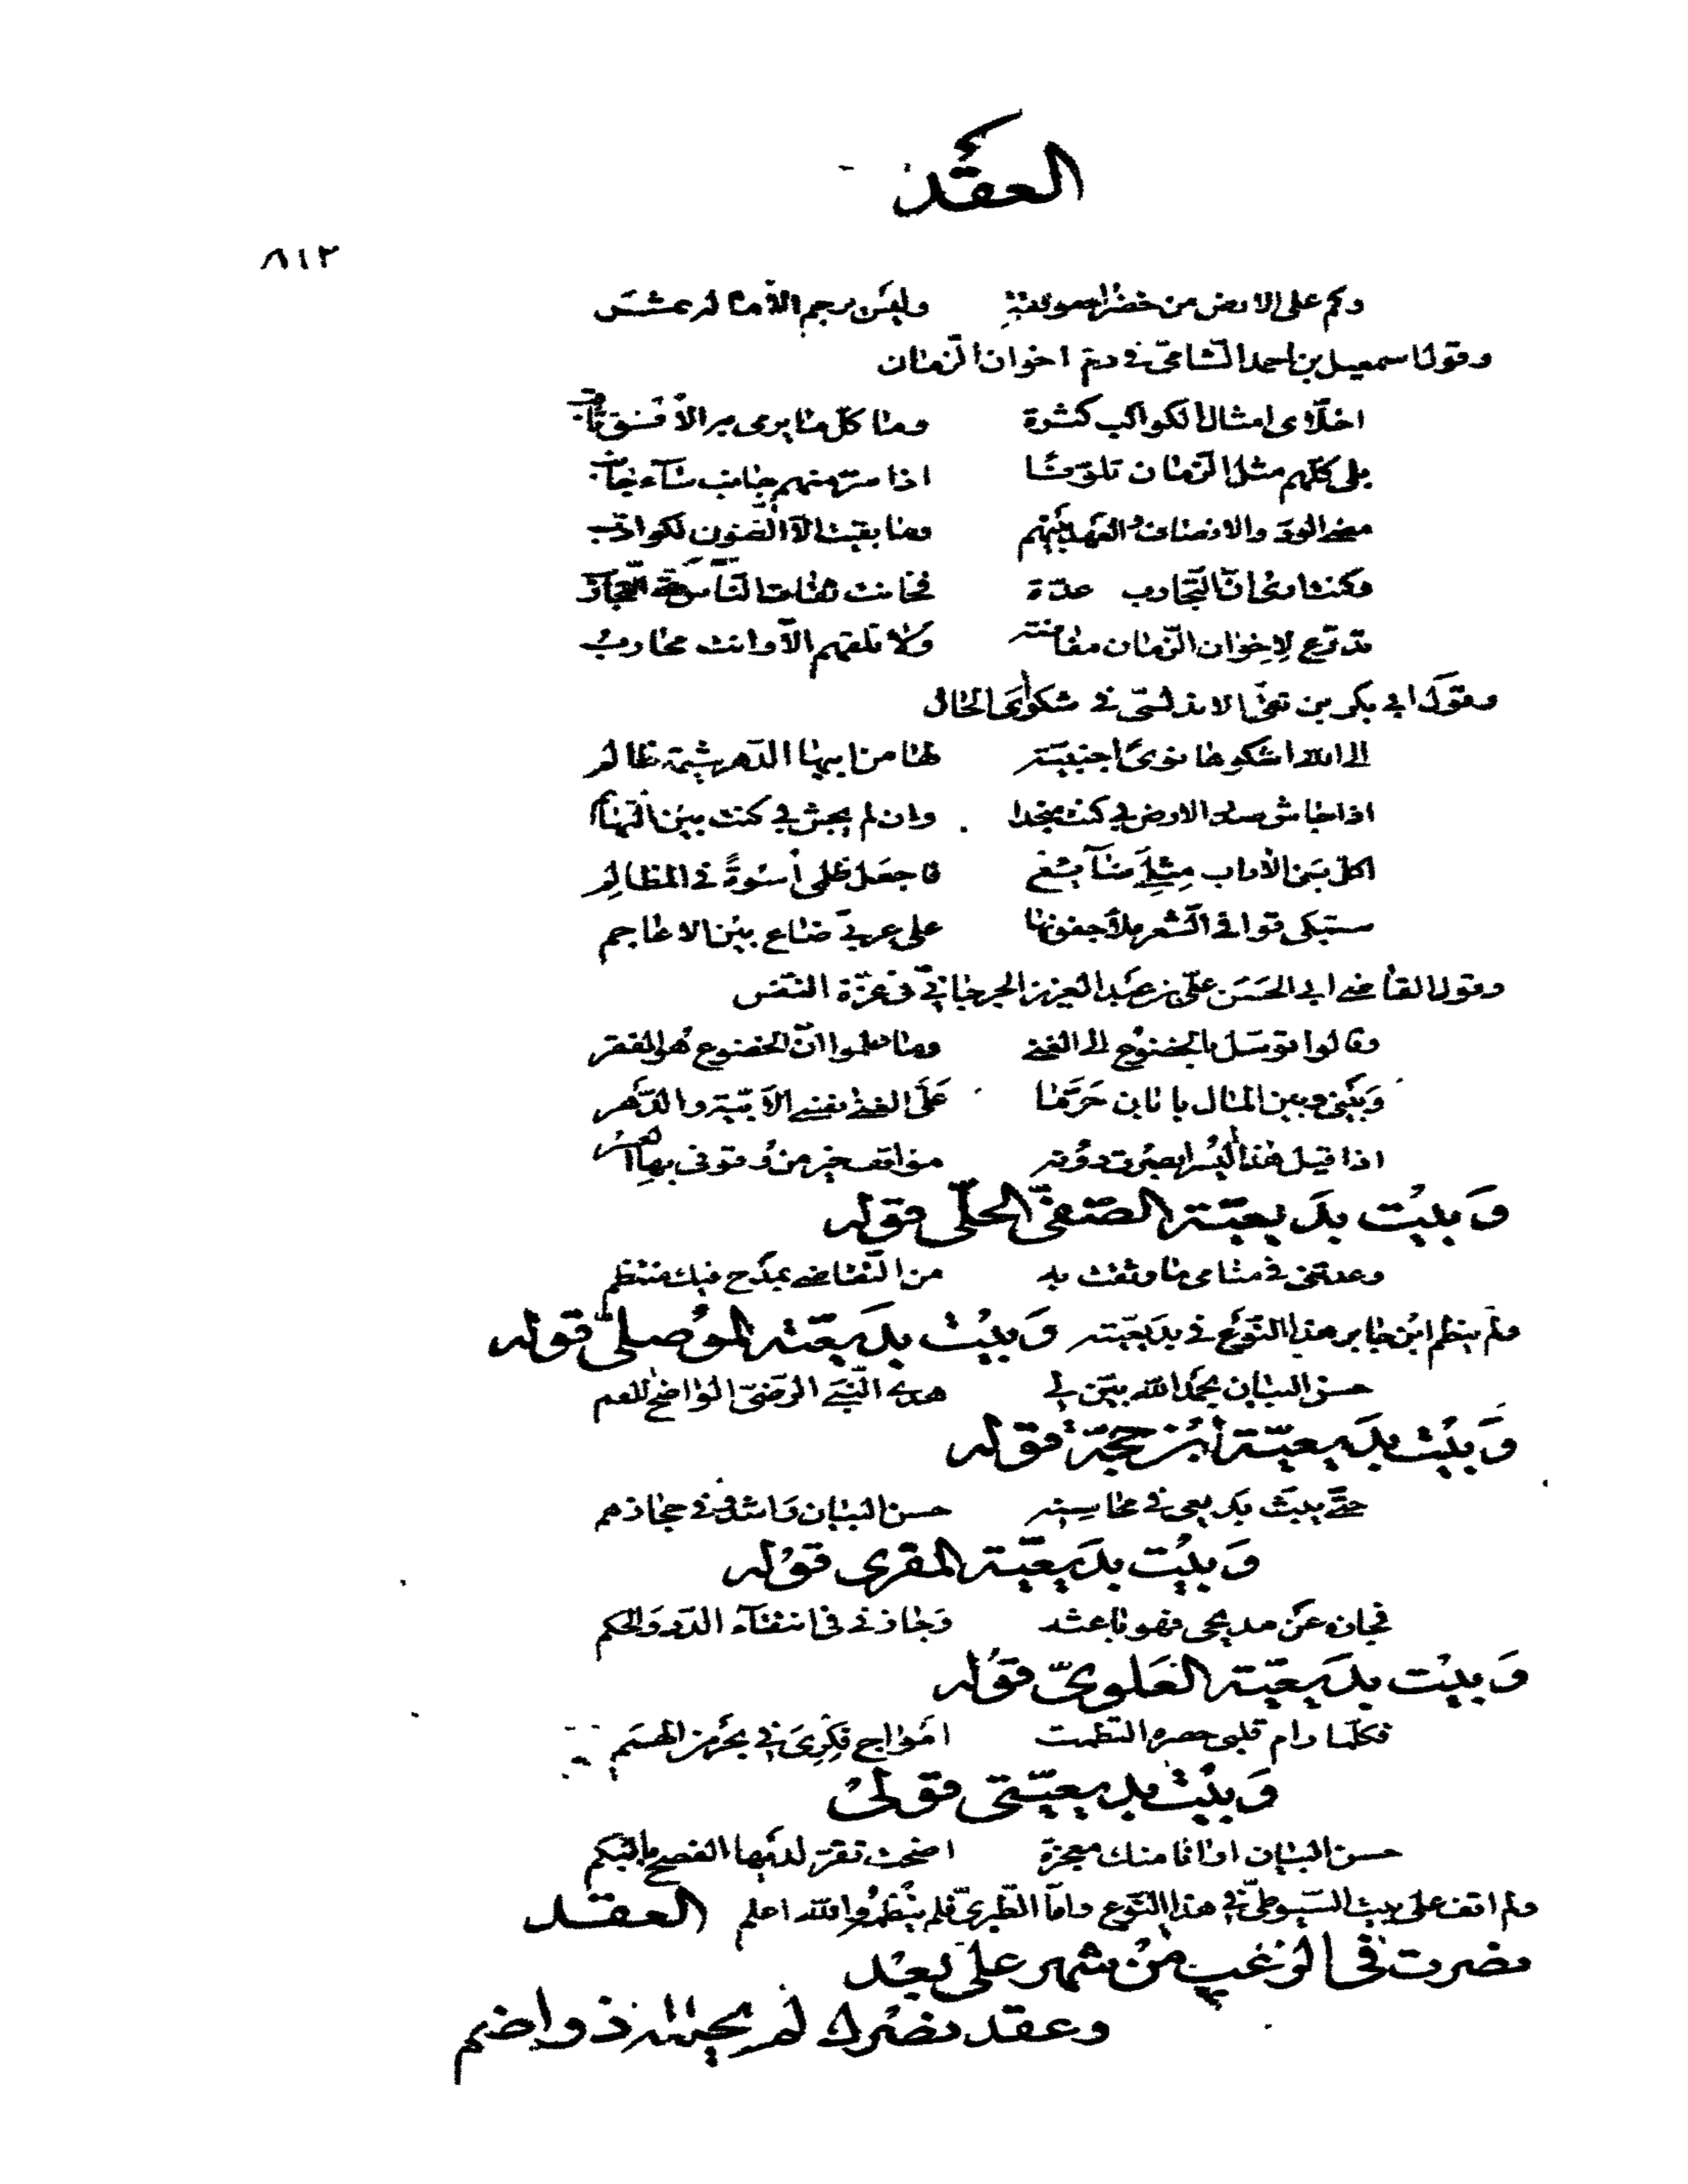 العقد
٨١٢
وكم على الارض من خضراء مونقة وليس يرجم الا ما له ثمر
وقول اسمعيل بن احمد الشاشى فى ذم اخوان الزمان
اخلاى امثال الكواكب كثرة وما كل ما يرمى به الافق ثاقب
بلى كلهم مثل الزمان تلونا اذا سر منهم جانب ساء جانب
مضى الود والانصاف والعهد بينهم وما بقيت الا الظنون الكواذب
وكنت ارى ان التجارب عدة فخانت ثقات الناس حتى التجارب
تدرع لاخوان الزمان مفاضة ولا تلقهم الا وانت محارب
وقول ابى بكر بن بقى الاندلسى فى شكوى الحال
الى الله اشكوها نوى اجنبية لها من ابيها الدهر شيمة ظالم
اذا جاش صدر الارض بى كنت منجدا وان لم يجش بى كنت بين التهائم
اكل بنى الاداب مثلى ضائع فاجعل ظلمى اسوة فى المظالم
ستبكى قوافى الشعر ملأ جفونها على عربى ضاع بين الاعاجم
وقول القاضى ابى الحسن على بن عبد العزيز الجرجانى فى عزة النفس
وقالوا توسل بالخضوع الى الغنى وما علموا ان الخضوع هو الفقر
وبينى وبين المال بابان حرما على الغنى نفسى الابية والدهر
اذا قيل هذا اليسر ابصرت دونه مواقف خير من وقوفى بها العسر
وبيت بديعية الصفى الحلى قوله
وعدتنى فى منامى ما وثقت به من التقاضى بمدح فيك منتظم
ولم ينظم ابن جابر هذا النوع فى بديعيته وبيت بديعية الموصلى قوله
حسن البيان بحمد الله بين لى هدى النبى الرضى الواضح اللقم
وبيت بديعية ابن حجة قوله
حتى بيت بديعى فى محاسنه حسن البيان واشدو فى حجازهم
وبيت بديعية المقرى قوله
فجاز عن مديحى فهو باعثه وجاز فى فى انتقاء الدر والحكم
وبيت بديعية العلوى قوله
فكلما رام قلبى حصره التطمت امواج فكرى فى بحر من الهمم
وبيت بديعيتى قولى
حسن البيان ارانا منك معجزة اضحت تقر لديها الفصح بالبكم
ولم اقف على بيت السيوطى فى هذا النوع واما الطبرى فلم ينظمه والله اعلم العقد
نصرت فى الرعب من شهر على بعد
وعقد نصرك لم يحلله ذو اضم